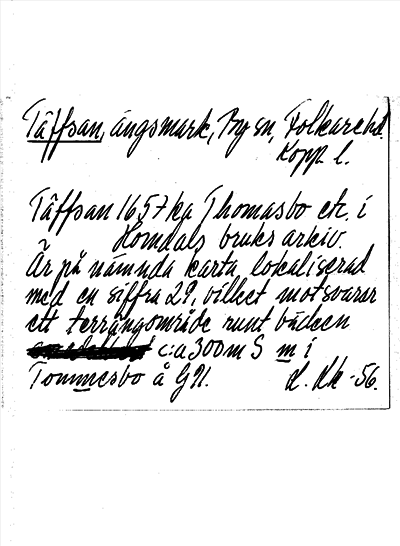 Täffsan, ängsmark, By sn, Folkare hd.
Kopp. l.
Täffsan 1657 ka Thomasbo etc. i
Horndals bruks arkiv.
Är på nämnda karta lokaliserad
med en siffra 29, vilket motsvarar
ett terrängområde runt bäcken
c:a 300m S m i
Tommesbo å GK.